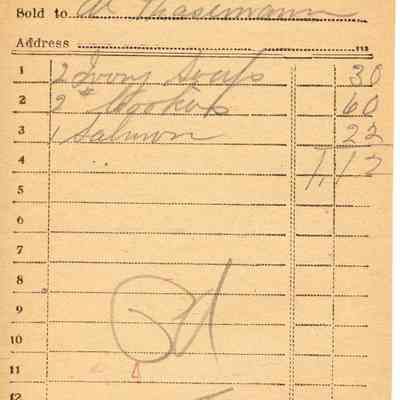 Sold to
Address
1 2 Ivory Soaps 30
2 2# Cookies 60
3 1 Salmon 22
4 1,12
5
6
7
8
9 Pd
10
11
12